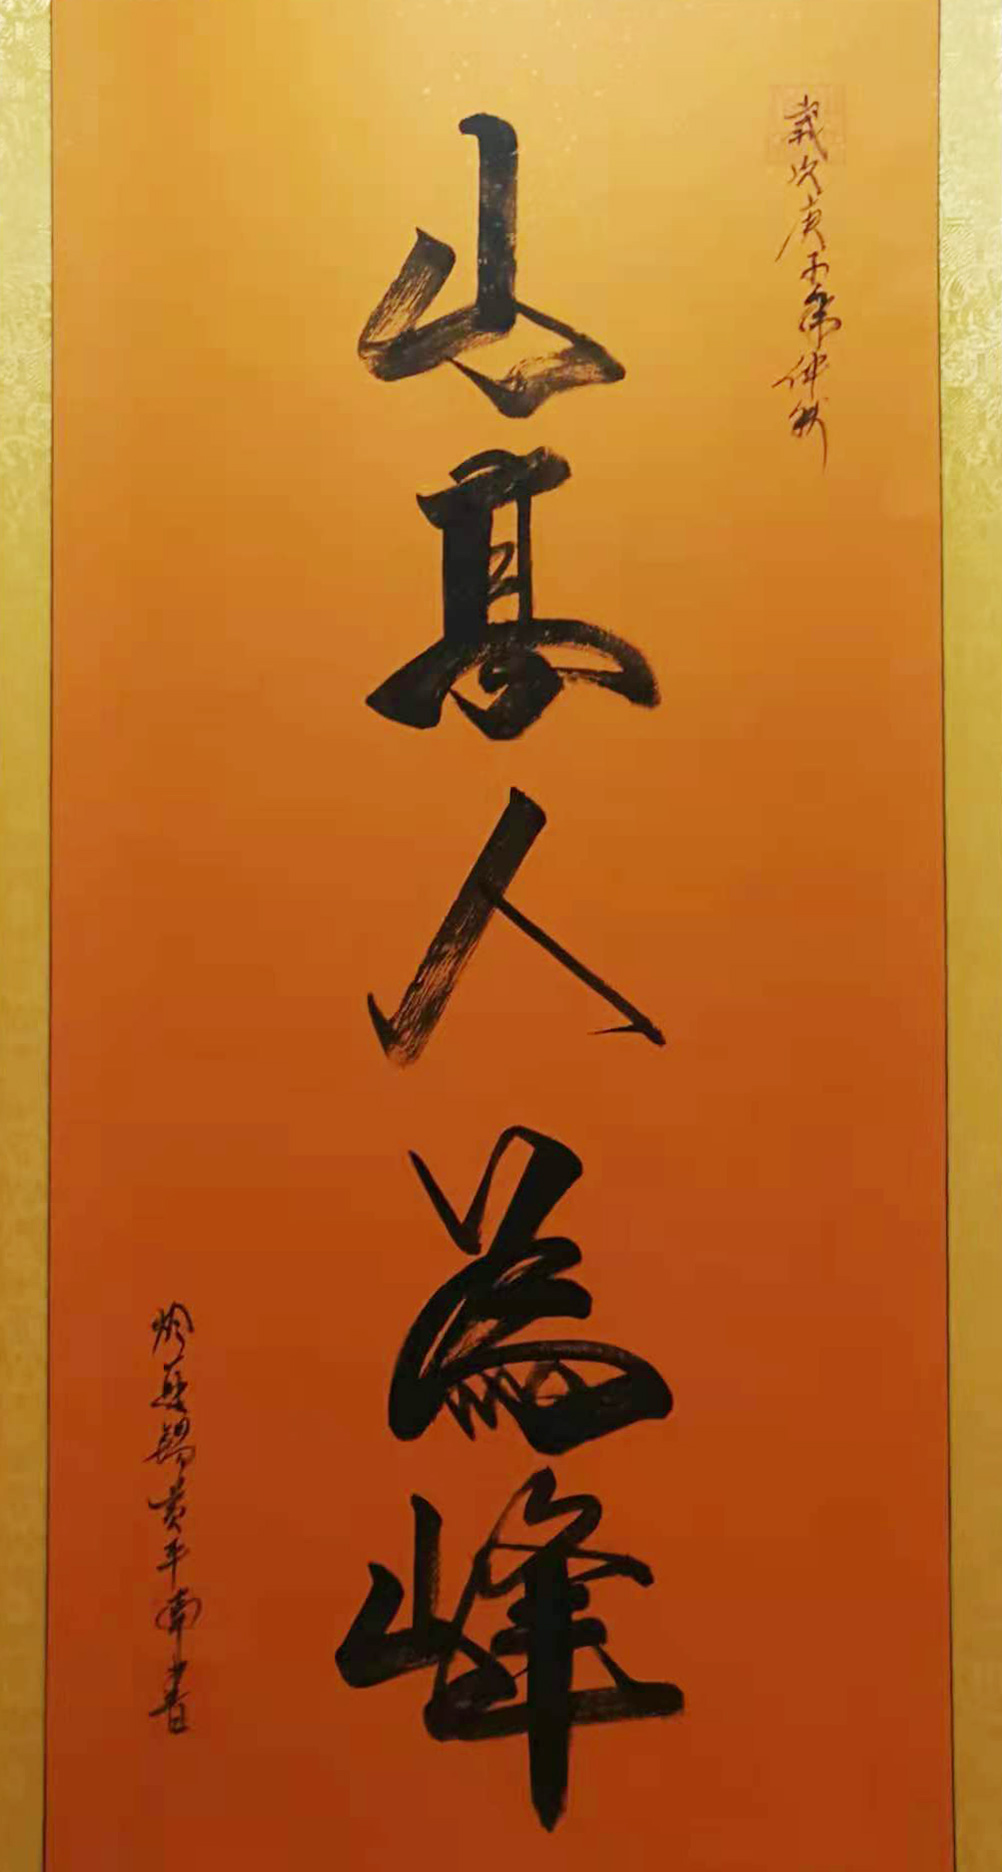 歲次庚子年仲秋
山高人為峰
黃平南書